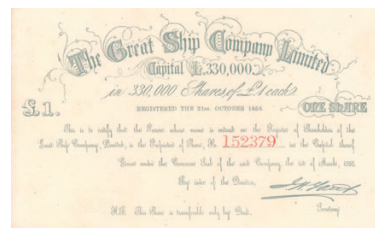 The Great Ship Company Limited
Capital £.330,000.
in 330,000 Shares of £1 each
REGISTERED THE 21st. OCTOBER 1858.
£1.
ONE SHARE
This is to certify that the Person whose name is entered on the Register of Shareholders of the
Great Ship Company, Limited, is the Proprietor of Share, No. 152379 in the Capital thereof
Given under the Common Seal of the said Company, the 1st of March, 1859
By order of the Directors,
Secretary
N.B. This Share is transferable only by Deed.